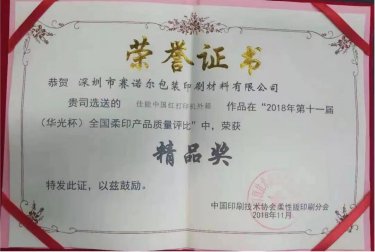 荣誉证书
恭贺 深圳市赛诺尔包装印刷材料有限公司
贵司选送的 佳能中国红打印机外箱 作品在“2018年第十一届
(华光杯)全国柔印产品质量评比”中，荣获
精品奖
特发此证，以兹鼓励。
中国印刷技术协会柔性版印刷分会
2018年11月